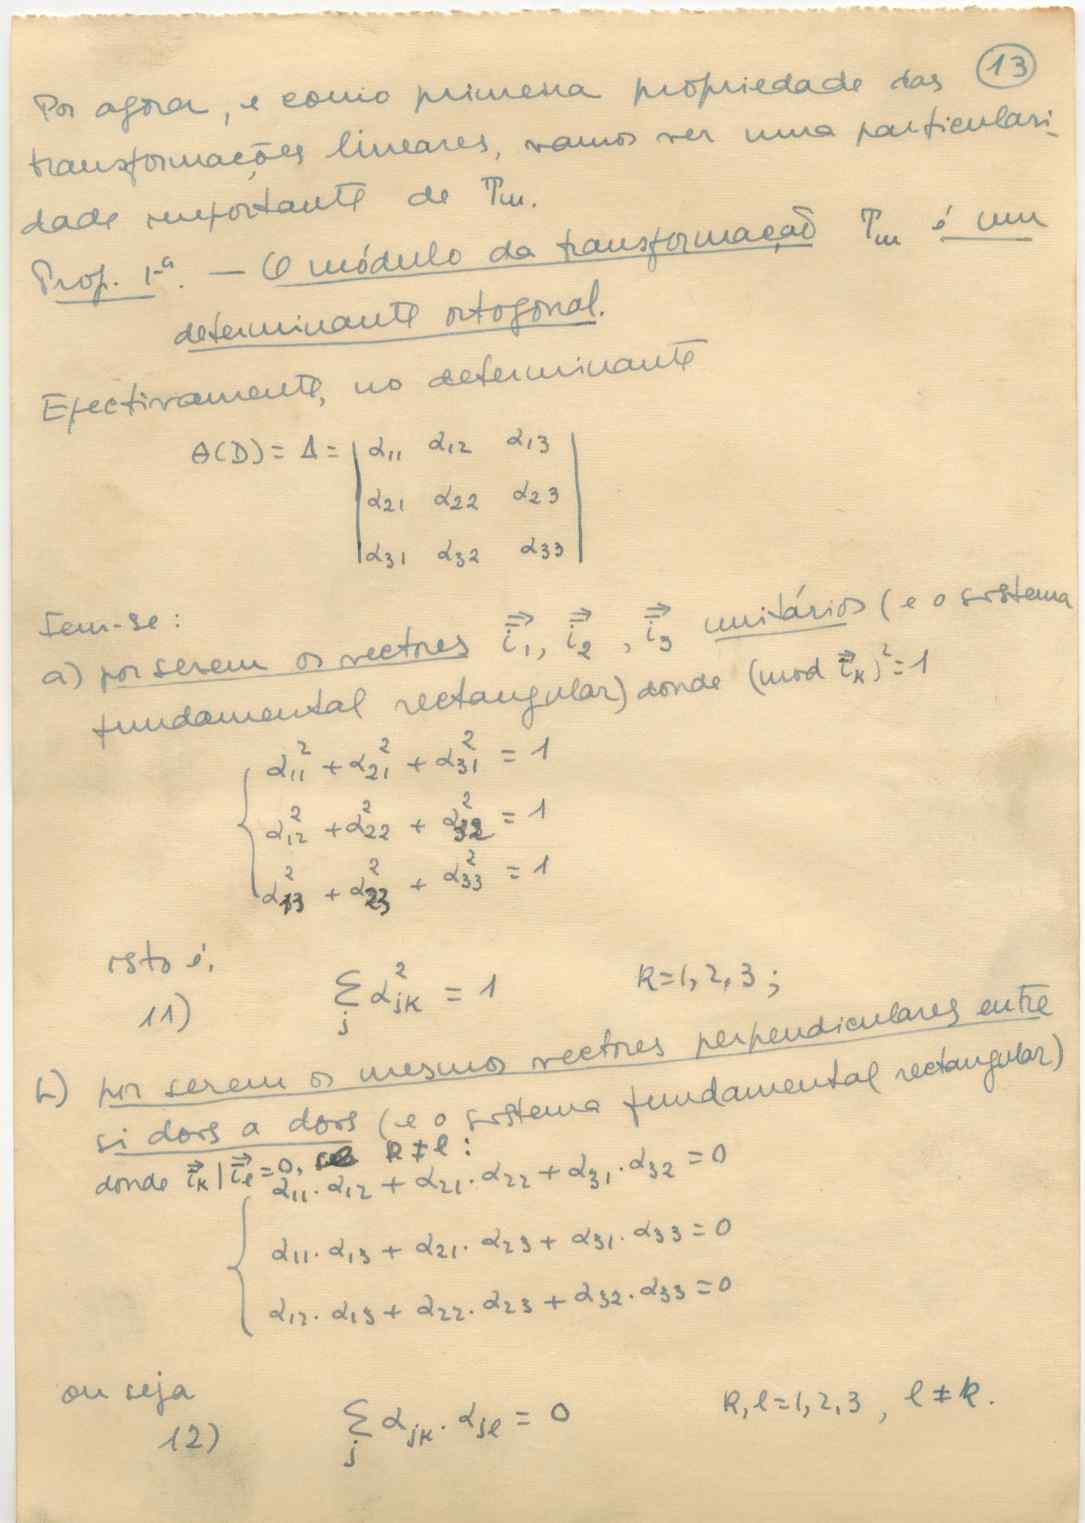 13
Por agora, e como primeira propriedade das
transformações lineares, vamos ver uma particulari-
dade importante de Tm.
Prop. 1-ª. — O módulo da transformação Tm é um
determinante ortogonal.
Efectivamente, no determinante
θ(D) = Δ = | α11 α12 α13 |
| α21 α22 α23 |
| α31 α32 α33 |
Tem-se:
a) por serem os vectores i⃗1, i⃗2, i⃗3 unitários (e o sistema
fundamental rectangular) donde (mod i⃗k)² = 1
α11² + α21² + α31² = 1
α12² + α22² + α32² = 1
α13² + α23² + α33² = 1
isto é,
11) Σj αjk² = 1 k=1,2,3;
b) por serem os mesmos vectores perpendiculares entre
si dois a dois (e o sistema fundamental rectangular)
donde i⃗k | i⃗l = 0, k ≠ l :
α11·α12 + α21·α22 + α31·α32 = 0
α11·α13 + α21·α23 + α31·α33 = 0
α12·α13 + α22·α23 + α32·α33 = 0
ou seja
12) Σj αjk·αjl = 0 k,l=1,2,3, l ≠ k.